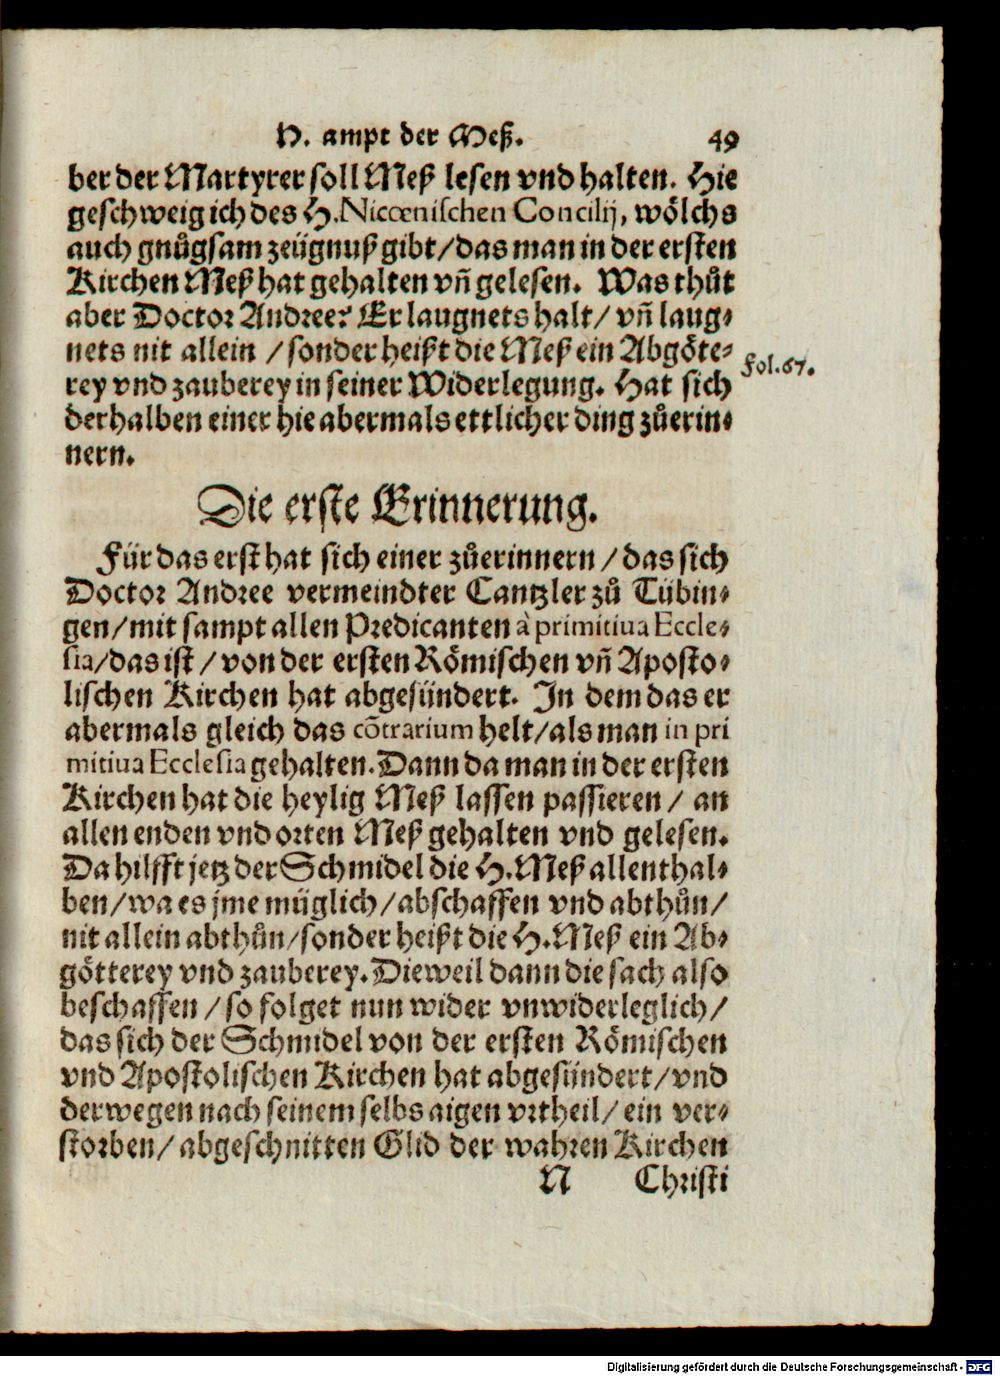 H. ampt der Meß. 49
ber der Martyrer soll Meß lesen vnd halten. Hie
geschweig ich des H. Nicœnischen Concilij, wölchs
auch gnůgsam zeügnuß gibt/das man in der ersten
Kirchen Meß hat gehalten vñ gelesen. Was thůt
aber Doctor Andree? Er laugnets halt/ vñ laug⸗
nets nit allein /sonder heißt die Meß ein Abgöte⸗
rey vnd zauberey in seiner Widerlegung. Hat sich
Fol.67.
derhalben einer hie abermals ettlicher ding zůerin⸗
nern.
Die erste Erinnerung.
Für das erst hat sich einer zůerinnern /das sich
Doctor Andree vermeindter Cantzler zů Tübin⸗
gen/mit sampt allen Predicanten à primitiua Eccle⸗
sia/das ist /von der ersten Römischen vñ Aposto⸗
lischen Kirchen hat abgesündert. In dem das er
abermals gleich das cõtrarium helt/als man in pri
mitiua Ecclesia gehalten. Dann da man in der ersten
Kirchen hat die heylig Meß lassen passieren/ an
allen enden vnd orten Meß gehalten vnd gelesen.
Da hilfft jetz der Schmidel die H. Meß allenthal⸗
ben/wa es jme müglich/abschaffen vnd abthůn/
nit allein abthůn/sonder heißt die H. Meß ein Ab⸗
götterey vnd zauberey. Dieweil dann die sach also
beschaffen /so folget nun wider vnwiderleglich/
das sich der Schmidel von der ersten Römischen
vnd Apostolischen Kirchen hat abgesündert/vnd
derwegen nach seinem selbs aigen vrtheil/ein ver⸗
storben/ abgeschnitten Glid der wahren Kirchen
N Christi
Digitalisierung gefördert durch die Deutsche Forschungsgemeinschaft - DFG